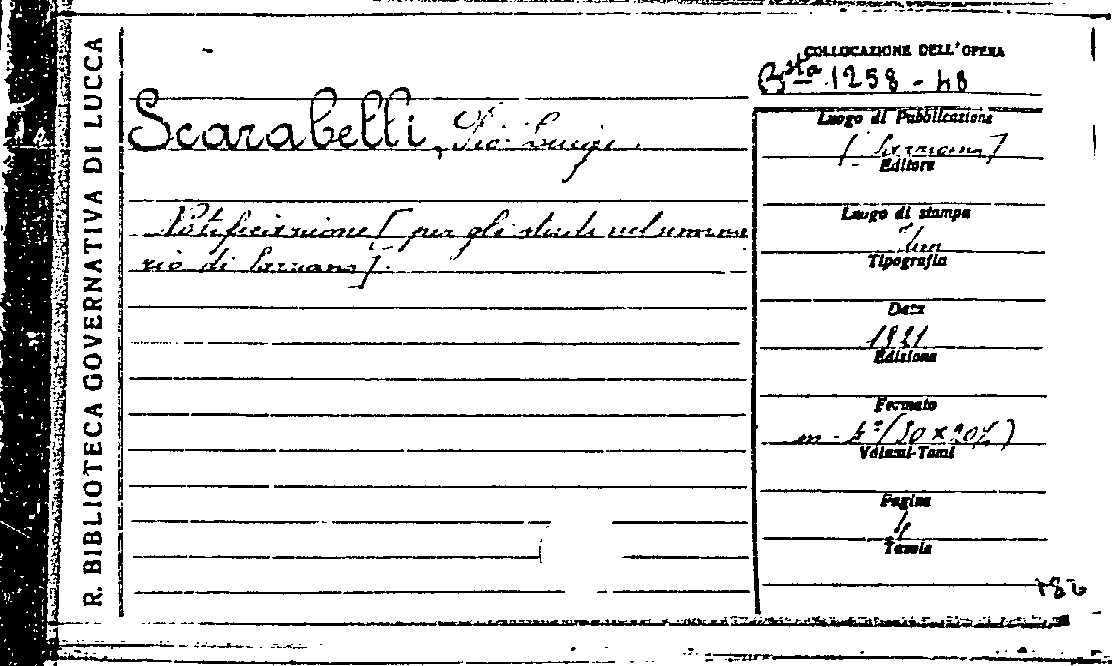 R. BIBLIOTECA GOVERNATIVA DI LUCCA
COLLOCAZIONE DELL'OPERA
Bsta 1258 - 48
Scarabelli, Pio Luigi.
Notificazione [per gli studi nel semina
rio di Sarzana].
Luogo di Pubblicazione
[Sarzana]
Editore
Luogo di stampa
Tipografia
Data
1821
Edizione
Formato
in - 4° (30 x 20½)
Volumi-Tomi
Pagine
4
Tavole